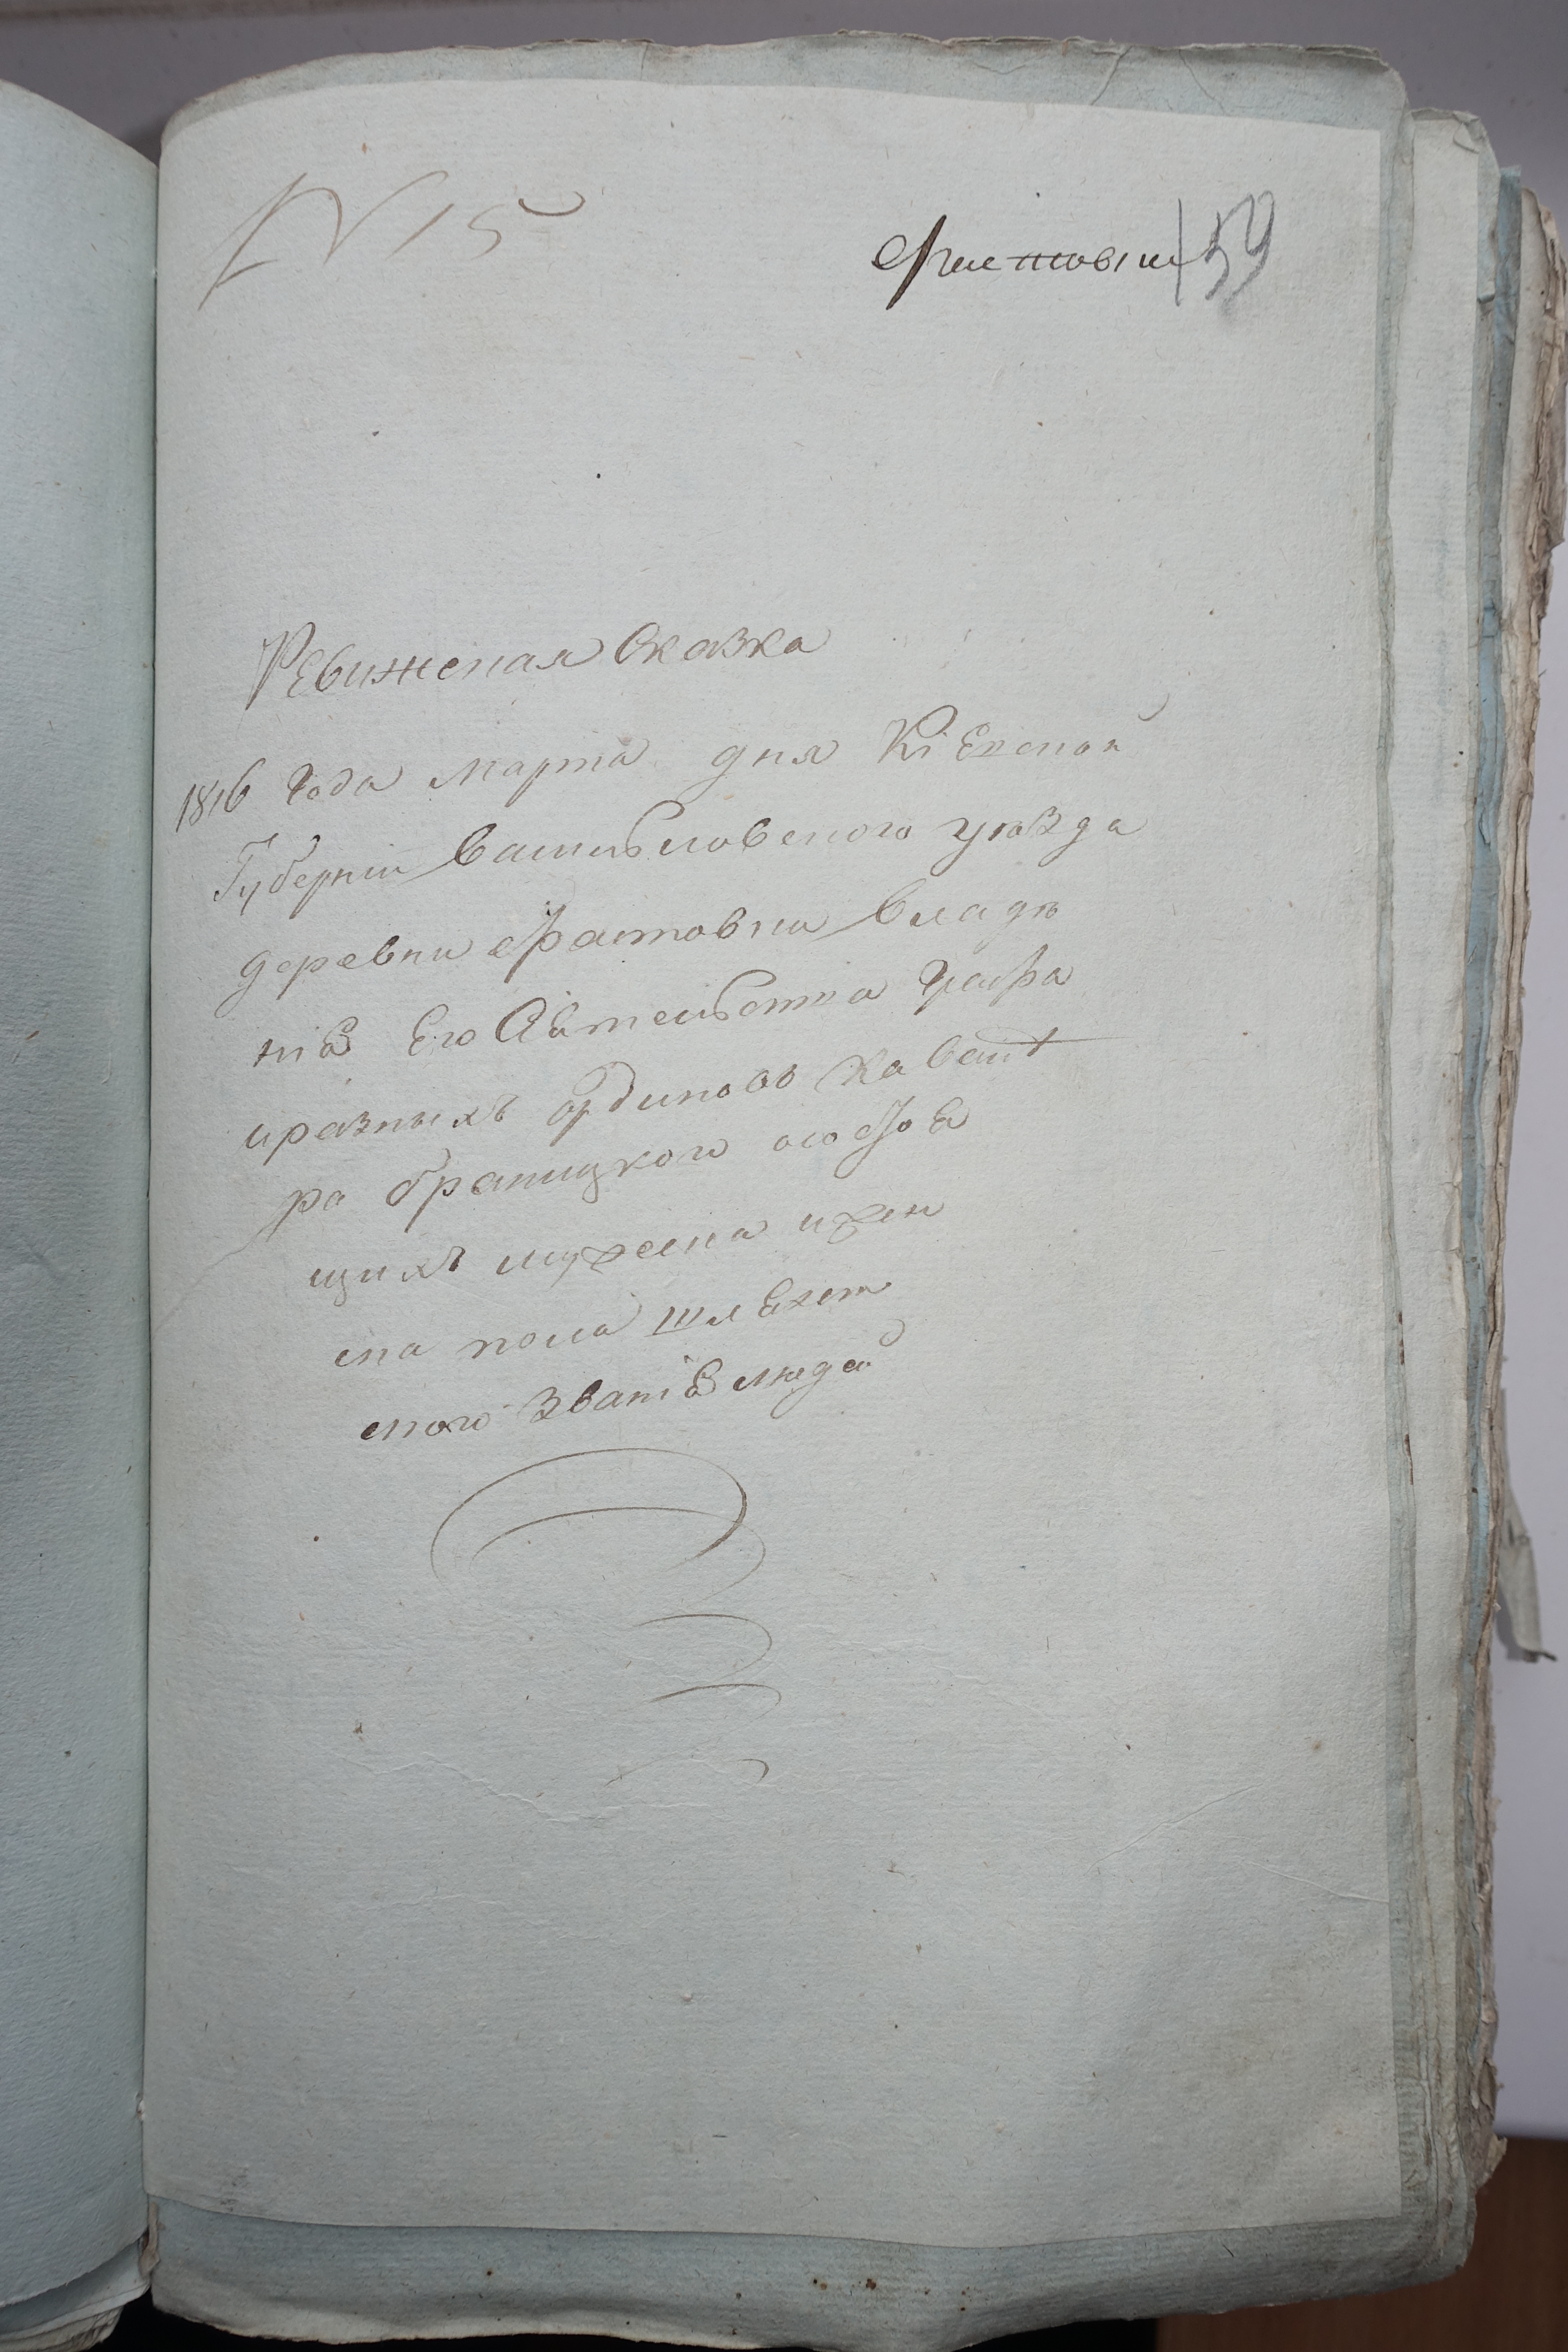 N 15
Фастовки 59
Ревижская Сказка
1816 Года марта дня Кіевской
Губерніи Васильковского уѣзда
деревни Фастовки владѣ
нія Его Сіятельства Графа
и разныхъ ординовъ Кавале
ра браницкого о состоя
щихъ мужска и жен
ска пола шляхет
ского званія людей